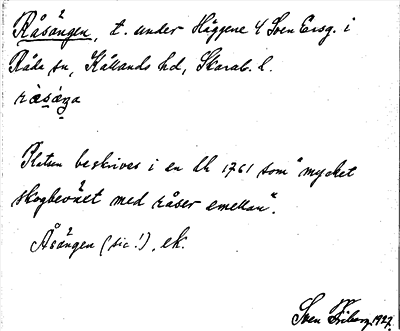 Råsången, t. under Häggene 4 Sven Larsg. i
Råda sn, Kållands hd, Skarab. l.
Platsen beskrives i en Lk 1761 som "mycket
skogbevänt med råser emellan".
Åsången (sic!), ek.
Sven Friberg 1927.